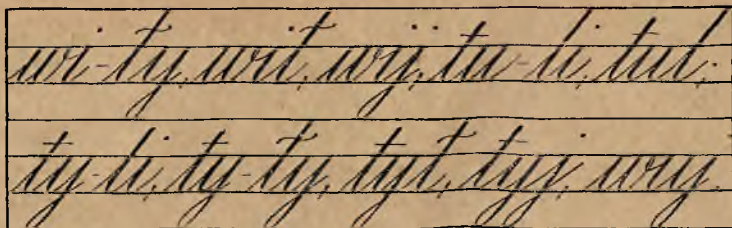 wi-ty, wit, wij, tu-li, tul.
ty-li, ty-ty, tyt, tyj, wyj.